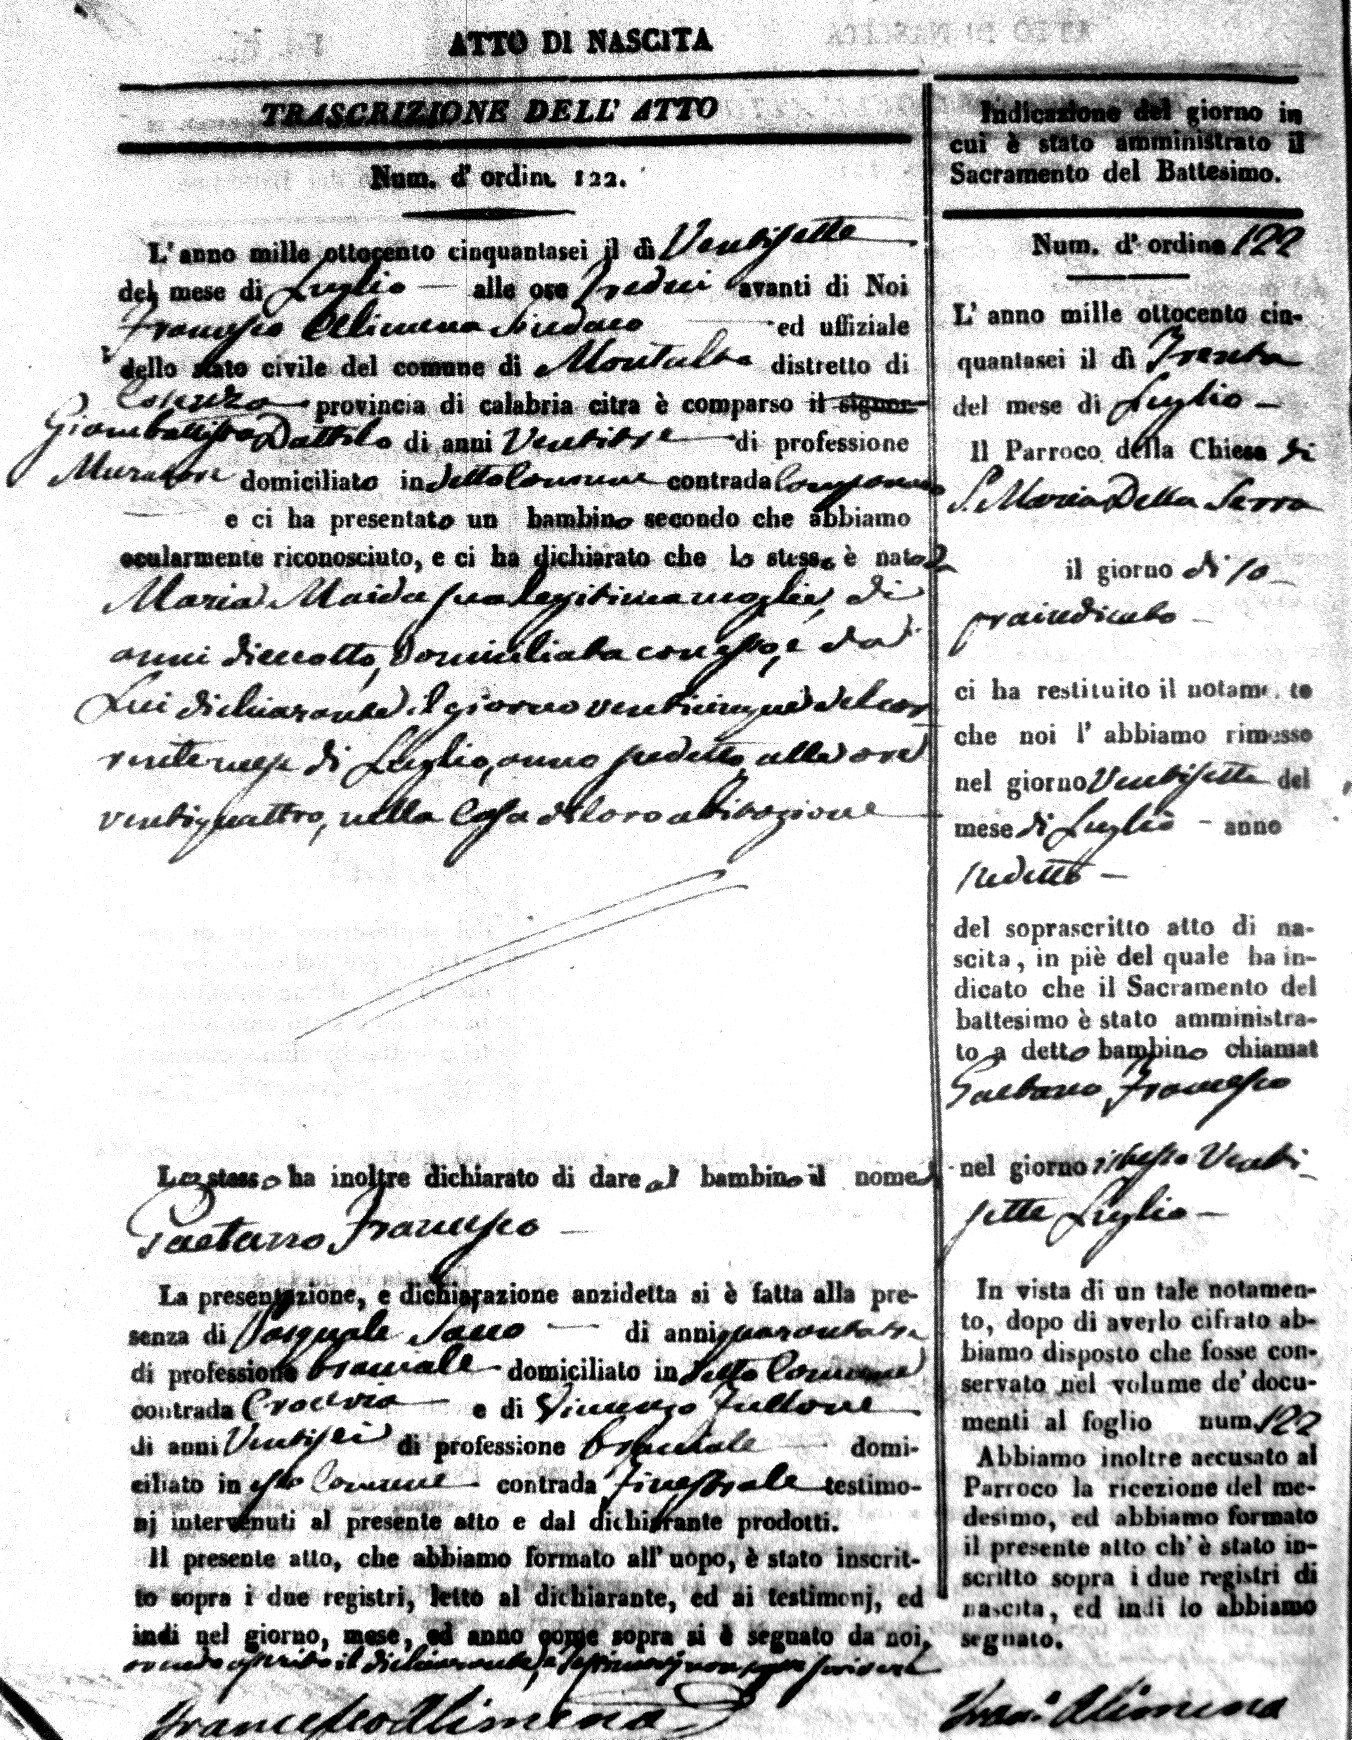 ATTO DI NASCITA
TRASCRIZIONE DELL' ATTO
Num. d' ordine 122.
L' anno mille ottocento cinquantasei il dì Ventisette
del mese di Luglio alle ore Tredici avanti di Noi
Francesco Alimena Sindaco ed uffiziale
dello stato civile del comune di Montalto distretto di
Cosenza provincia di calabria citra è comparso il signor
Giambattista Dattilo di anni Ventitre di professione
Muratore domiciliato in detto Comune contrada
e ci ha presentato un bambino secondo che abbiamo
ocularmente riconosciuto, e ci ha dichiarato che lo stesso è nato da
Maria Maida sua legitima moglie, di
anni dieciotto, domiciliata con esso, e da
Lui dichiarante il giorno venticinque del cor
rente mese di Luglio, anno sudetto, alle ore
ventiquattro, nella Casa di loro abitazione
Lo stesso ha inoltre dichiarato di dare al bambino il nome di
Gaetano Francesco
La presentazione, e dichiarazione anzidetta si è fatta alla pre-
senza di Pasquale Sano di anni quarantatre
di professione bracciale domiciliato in detto Comune
contrada Crocevia e di Vincenzo Fullone
di anni Ventisei di professione bracciale domi-
ciliato in esso Comune contrada Finestrale testimo-
nj intervenuti al presente atto e dal dichiarante prodotti.
Il presente atto, che abbiamo formato all' uopo, è stato inscrit-
to sopra i due registri, letto al dichiarante, ed ai testimonj, ed
indi nel giorno, mese, ed anno come sopra si è segnato da noi,
avendo asserito il dichiarante, e testimonj non saper scrivere
Francesco Alimena
Indicazione del giorno in
cui è stato amministrato il
Sacramento del Battesimo.
Num. d' ordine 122
L' anno mille ottocento cin-
quantasei il dì Trenta
del mese di Luglio
Il Parroco della Chiesa di
S. Maria Della Serra
il giorno di so
praindicato
ci ha restituito il notamento
che noi l' abbiamo rimesso
nel giorno Ventisette del
mese di Luglio anno
sudetto
del soprascritto atto di na-
scita, in piè del quale ha in-
dicato che il Sacramento del
battesimo è stato amministra-
to a detto bambino chiamat
Gaetano Francesco
nel giorno istesso Venti
sette Luglio
In vista di un tale notamen-
to, dopo di averlo cifrato ab-
biamo disposto che fosse con-
servato nel volume de' docu-
menti al foglio num. 122
Abbiamo inoltre accusato al
Parroco la ricezione del me-
desimo, ed abbiamo formato
il presente atto ch' è stato in-
scritto sopra i due registri di
nascita, ed indi lo abbiamo
segnato.
Fran. Alimena